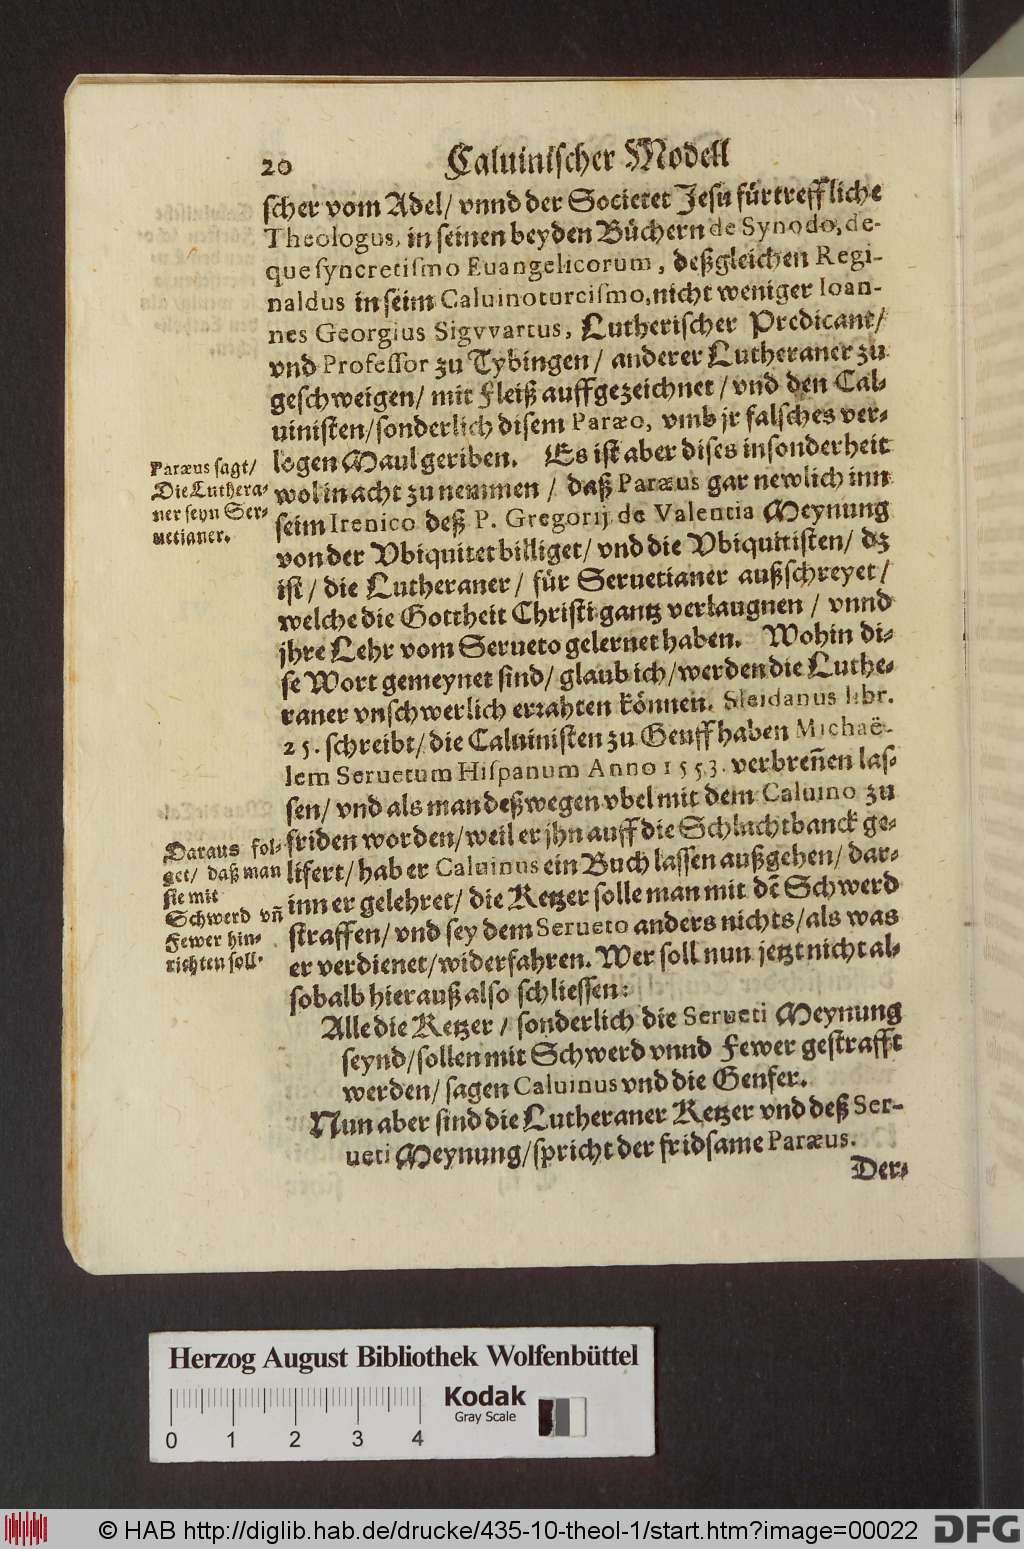 20
Caluinischer Modell
scher vom Adel/ vnnd der Societet Jesu fürtreffliche
Theologus, in seinen beyden Büchern de Synodo, de-
que syncretismo Euangelicorum, deßgleichen Regi-
naldus in seim Caluinoturcismo, nicht weniger Ioan-
nes Georgius Sigvvartus, Lutherischer Predicant/
vnd Professor zu Tybingen/ anderer Lutheraner zu
geschweigen/ mit Fleiß auffgezeichnet/ vnd den Cal-
uinisten/ sonderlich disem Paræo, vmb jr falsches ver-
logen Maul geriben. Es ist aber dises insonderheit
wol in acht zu nemmen/ daß Paræus gar newlich inn
seim Irenico deß P. Gregorij de Valentia Meynung
von der Vbiquitet billiget/ vnd die Vbiquitisten/ dz
ist/ die Lutheraner/ für Seruetianer außschreyet/
welche die Gottheit Christi gantz verlaugnen/ vnnd
jhre Lehr vom Serueto gelernet haben. Wohin di-
se Wort gemeynet sind/ glaub ich/ werden die Luthe-
raner vnschwerlich errahten können. Sleidanus libr.
25. schreibt/ die Caluinisten zu Genff haben Michaë-
lem Seruetum Hispanum Anno 1553. verbreñen las-
sen/ vnd als man deßwegen vbel mit dem Caluino zu
friden worden/ weil er jhn auff die Schlachtbanck ge-
lifert/ hab er Caluinus ein Buch lassen außgehen/ dar-
inn er gelehret/ die Ketzer solle man mit dẽ Schwerd
straffen/ vnd sey dem Serueto anders nichts/ als was
er verdienet/ widerfahren. Wer soll nun jetzt nicht al-
sobalb hierauß also schliessen:
Alle die Ketzer/ sonderlich die Serueti Meynung
seynd/ sollen mit Schwerd vnnd Fewer gestrafft
werden/ sagen Caluinus vnd die Genfer.
Nun aber sind die Lutheraner Ketzer vnd deß Ser-
ueti Meynung/ spricht der fridsame Paræus.
Der-
Paræus sagt/
Die Luthera-
ner seyn Ser-
uetianer.
Daraus fol-
get/ daß man
sie mit
Schwerd vñ
Fewer hin-
richten soll.
Herzog August Bibliothek Wolfenbüttel
Kodak
Gray Scale
0 1 2 3 4
© HAB http://diglib.hab.de/drucke/435-10-theol-1/start.htm?image=00022
DFG